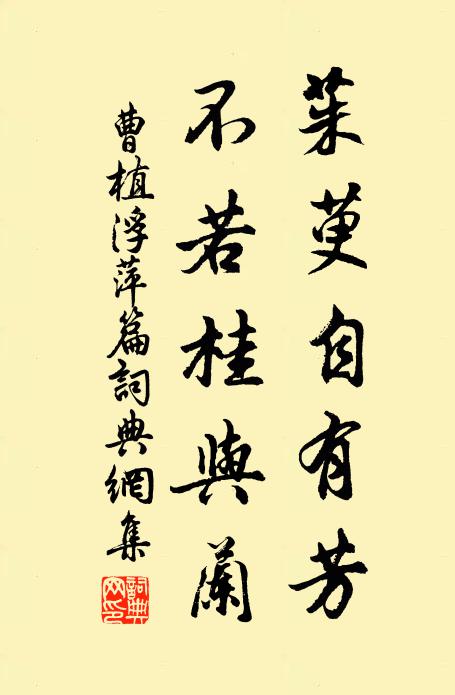 茱萸自有芳
不若桂與蘭
曹植浮萍篇詞典網集
詞典
网印